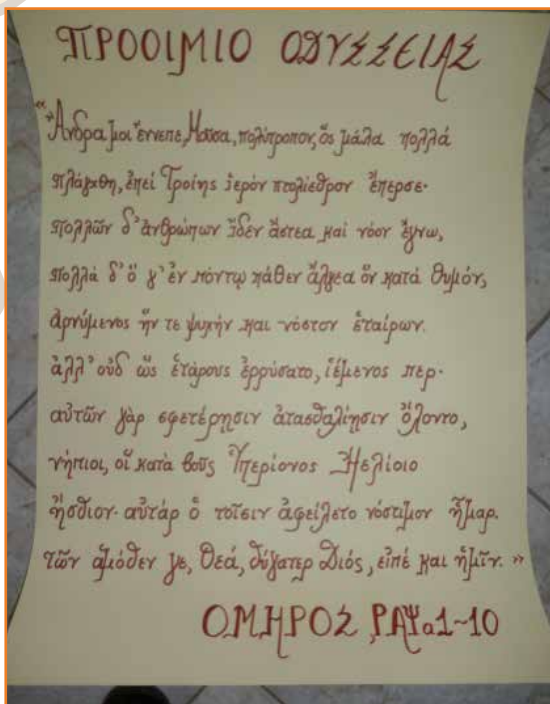 ΠΡΟΟΙΜΙΟ ΟΔΥΣΣΕΙΑΣ
«Ἄνδρα μοι ἔννεπε, Μοῦσα, πολύτροπον, ὅς μάλα πολλά
πλάγχθη, ἐπεί Τροίης ἱερόν πτολίεθρον ἔπερσε·
πολλῶν δ' ἀνθρώπων ἴδεν ἄστεα καί νόον ἔγνω,
πολλά δ' ὅ γ' ἐν πόντῳ πάθεν ἄλγεα ὅν κατά θυμόν,
ἀρνύμενος ἥν τε ψυχήν και νόστον ἑταίρων.
ἀλλ' οὐδ ὥς ἑτάρους ἐρρύσατο, ἱέμενος περ·
αὐτῶν γάρ σφετέρησιν ἀτασθαλίησιν ὄλοντο,
νήπιοι, οἵ κατά βοῦς Ὑπερίονος Ἠελίοιο
ἤσθιον· αὐτάρ ὁ τοῖσιν ἀφείλετο νόστιμον ἦμαρ.
τῶν ἁμόθεν γε, Θεά, θύγατερ Διός, εἰπέ και ἡμῖν.»
ΟΜΗΡΟΣ ΡΑΨ α1~10